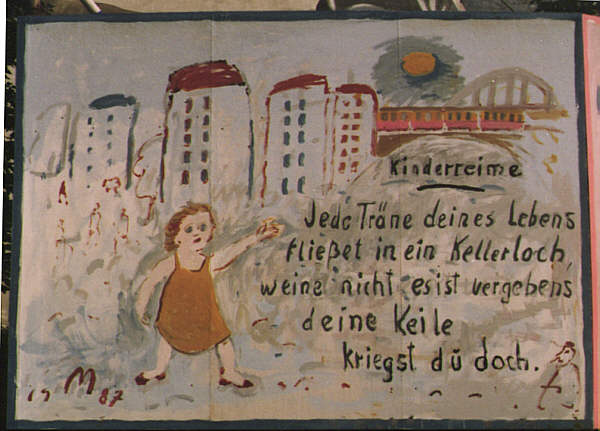 Kinderreime
Jede Träne deines Lebens
fließet in ein Kellerloch,
weine nicht, es ist vergebens
deine Keile
kriegst du doch.
19 M 87